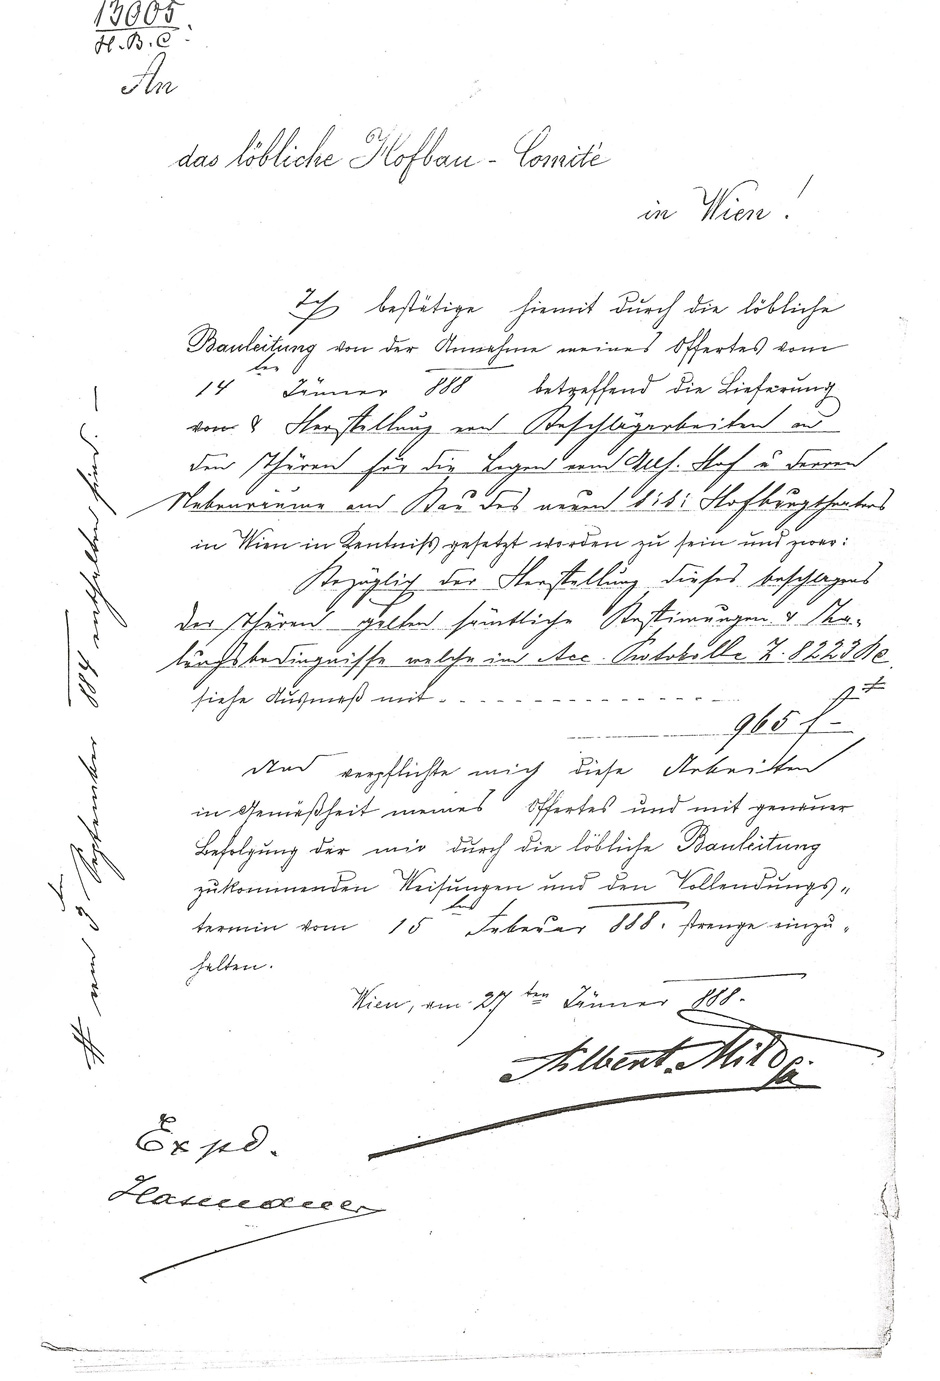 13005
H.B.C:
An
das löbliche Hofbau-Comité
in Wien!
Ich bestätige hiemit durch die löbliche
Bauleitung von der Annahme meines Offertes vom
14ten Jänner 888 betreffend die Lieferung
von & Herstellung von Beschlägarbeiten an
den Thüren für die Logen vom Allh. Hof u deren
Nebenräume am Bau des neuen k: k: Hofburgtheaters
in Wien in Kentniß gesetzt worden zu sein und zwar:
Bezüglich der Herstellung dieses beschlagens
der Thüren gelten sämtliche Bestimungen & Za-
lungsbedingnisse welche im Acc. Protokolle Z. 8223
siehe Ausmaß mit
965 f –
Und verpflichte mich diese Arbeiten
in Gemäßheit meines Offertes und mit genauer
Befolgung der mir durch die löbliche Bauleitung
zukommenden Weisungen und den Vollendungs-
termin vom 15ten Februar 888. strenge einzu-
halten.
Wien, am 27ten Jänner 888.
Albert Milde
# vom 3ten September 884 enthalten sind. –
Expd.